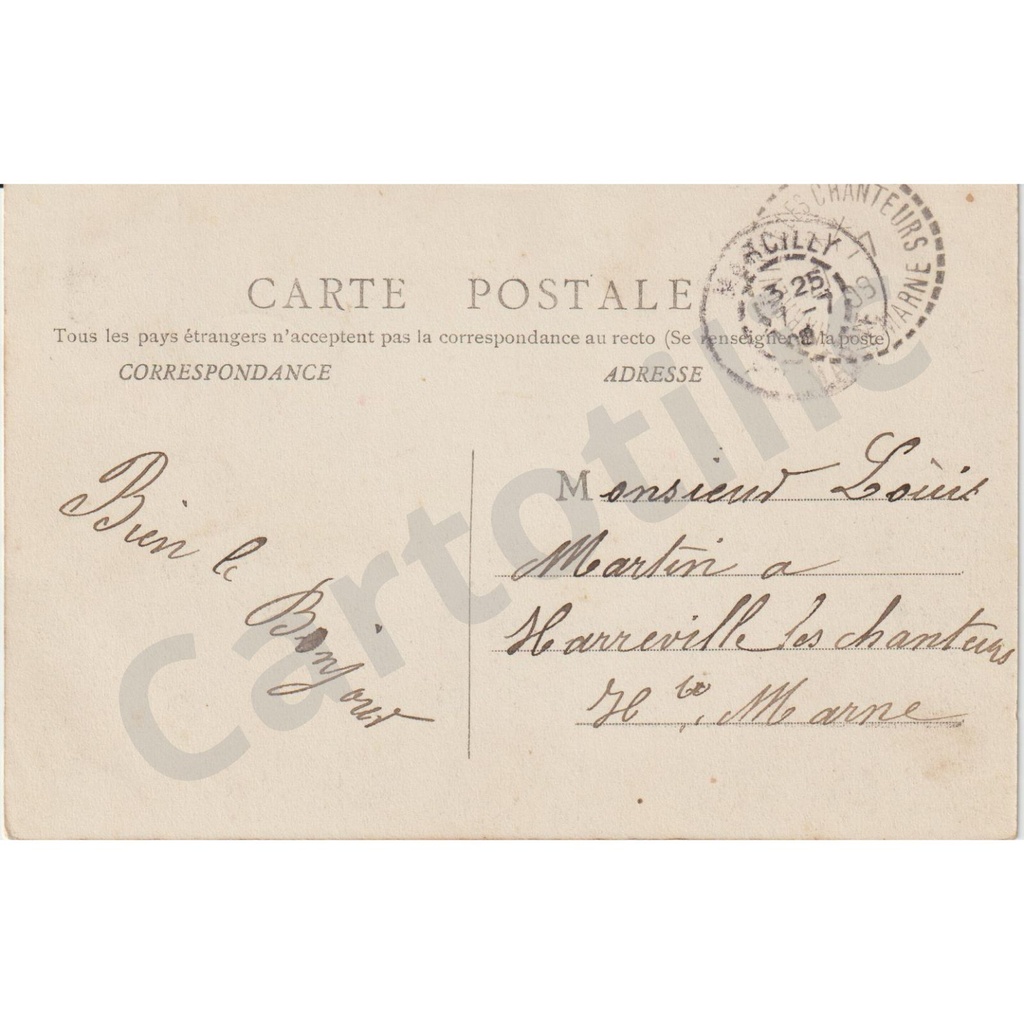 CARTE POSTALE
Tous les pays étrangers n'acceptent pas la correspondance au recto (Se renseigner à la poste)
CORRESPONDANCE
ADRESSE
MARCILLY
3 25
7
ES CHANTEURS
MARNE
08
Bien le
Bonjour
Monsieur Louis
Martin a
Harreville les chanteurs
Hte Marne
Cartotilie